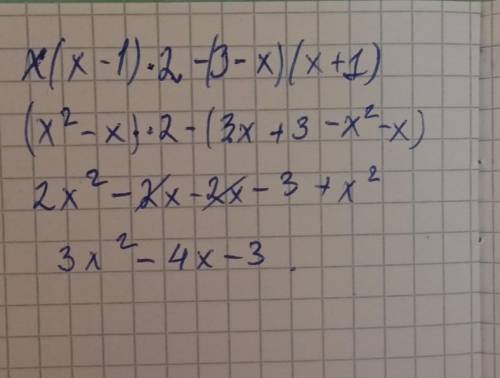 x(x-1)·2-(3-x)(x+1)
(x²-x)·2-(3x+3-x²-x)
2x²-2x-2x-3+x²
3x²-4x-3.